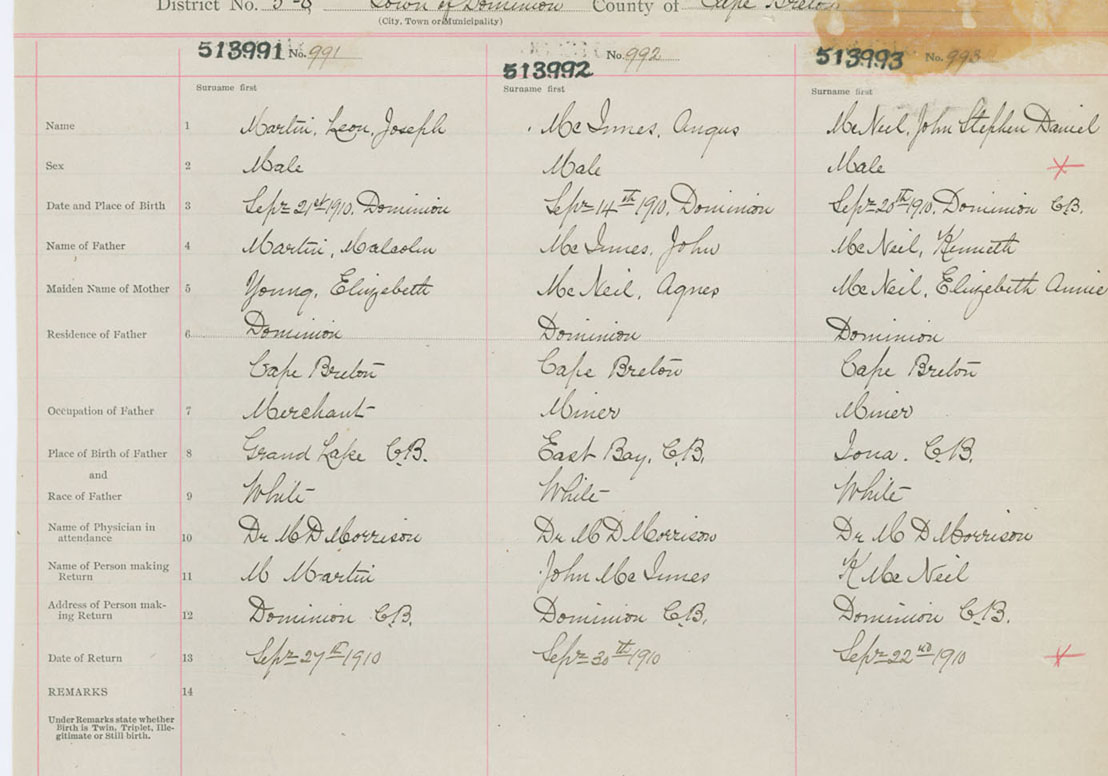 District No. 5-8 Town of Dominion County of Cape Breton
(City, Town or Municipality)
513991 No. 991 513992 No. 992 513993 No. 993
Surname first Surname first Surname first
Name 1 Martin, Leon, Joseph McInnes, Angus McNeil, John Stephen Daniel
Sex 2 Male Male Male
Date and Place of Birth 3 Sept 21st 1910, Dominion Sept 14th 1910, Dominion Sept 20th 1910, Dominion C.B.
Name of Father 4 Martin, Malcolm McInnes, John McNeil, Kenneth
Maiden Name of Mother 5 Young, Elizebeth McNeil, Agnes McNeil, Elizebeth Annie
Residence of Father 6 Dominion Dominion Dominion
Cape Breton Cape Breton Cape Breton
Occupation of Father 7 Merchant Miner Miner
Place of Birth of Father 8 Grand Lake C.B. East Bay, C.B. Iona. C.B.
and
Race of Father 9 White White White
Name of Physician in
attendance 10 Dr M D Morrison Dr M D Morrison Dr M D Morrison
Name of Person making
Return 11 M Martin John McInnes K McNeil
Address of Person mak-
ing Return 12 Dominion C.B. Dominion C.B. Dominion C.B.
Date of Return 13 Sept 27th 1910 Sept 30th 1910 Sept 22nd 1910
REMARKS 14
Under Remarks state whether
Birth is Twin, Triplet, Ille-
gitimate or Still birth.